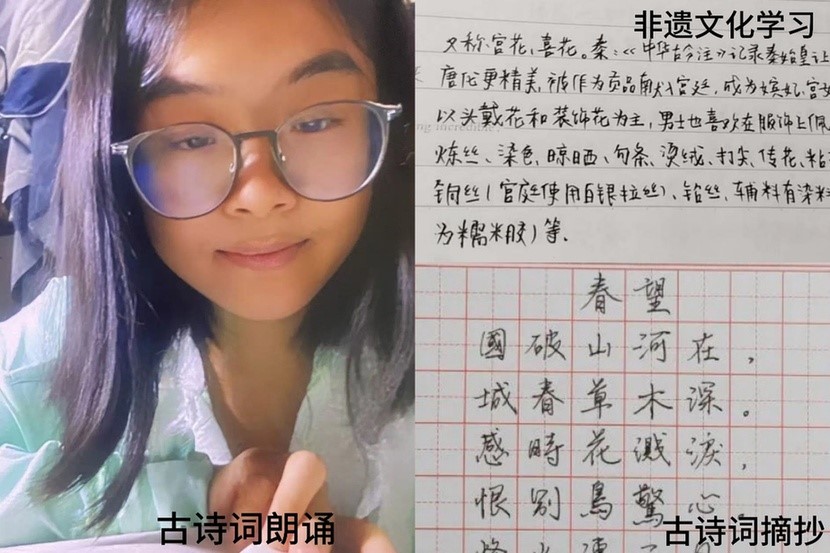 古诗词朗诵
非遗文化学习
又称宫花、喜花。秦:《中华古今注》记录秦始皇让
唐代更精美,被作为贡品献入宫廷,成为嫔妃宫女
以头戴花和装饰花为主,男士也喜欢在服饰上佩
ng incredible.
炼丝、染色、晾晒、勾条、烫绒、打尖、传花、粘
铜丝(官庭使用白银拉丝)、铅丝、辅料有染料
为糯米胶)等.
春望
國破山河在,
城春草木深。
感時花濺淚,
恨别鳥驚心
古诗词摘抄